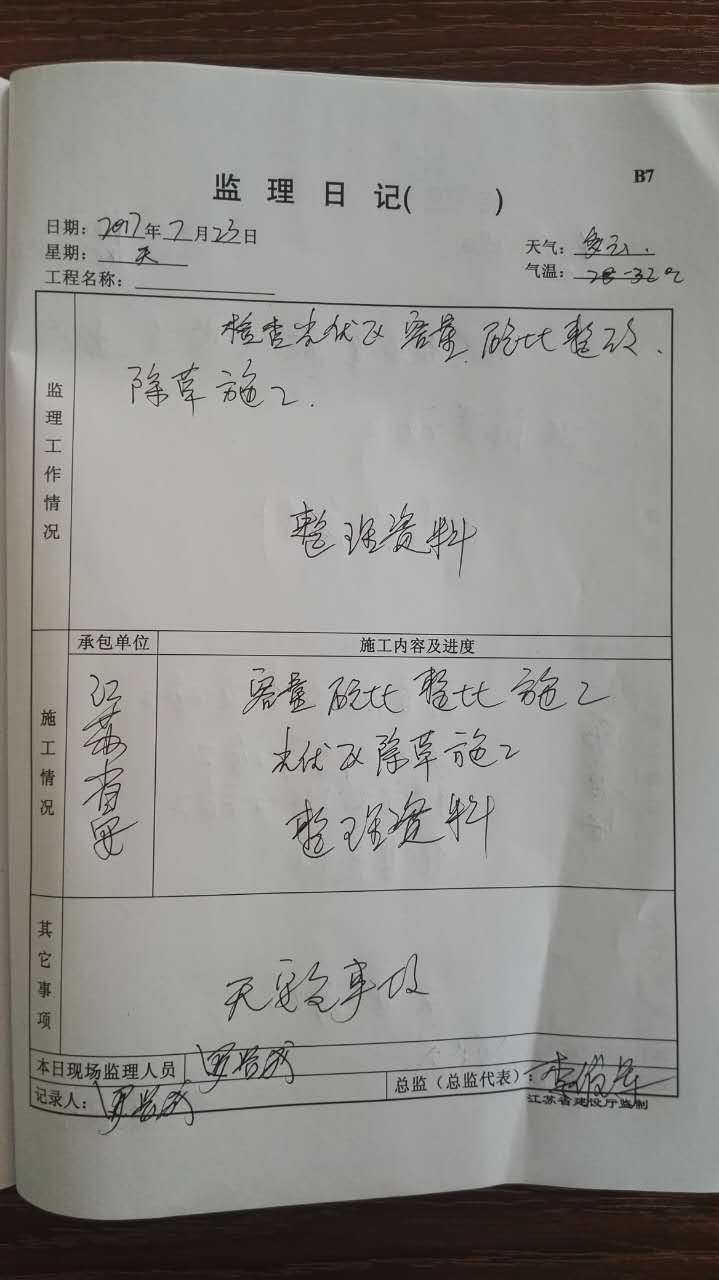 B7
监 理 日 记( )
日期: 2017年7月23日
星期: 天
天气: 多云.
工程名称:
气温: 28-32℃
监理工作情况
检查光伏区容量 整改.
除草施工.
整理资料
承包单位
施工内容及进度
施工情况
江苏省安
容量 施工
光伏区除草施工
整理资料
其它事项
无安全事故
本日现场监理人员
记录人:
总监（总监代表）:
江苏省建设厅监制